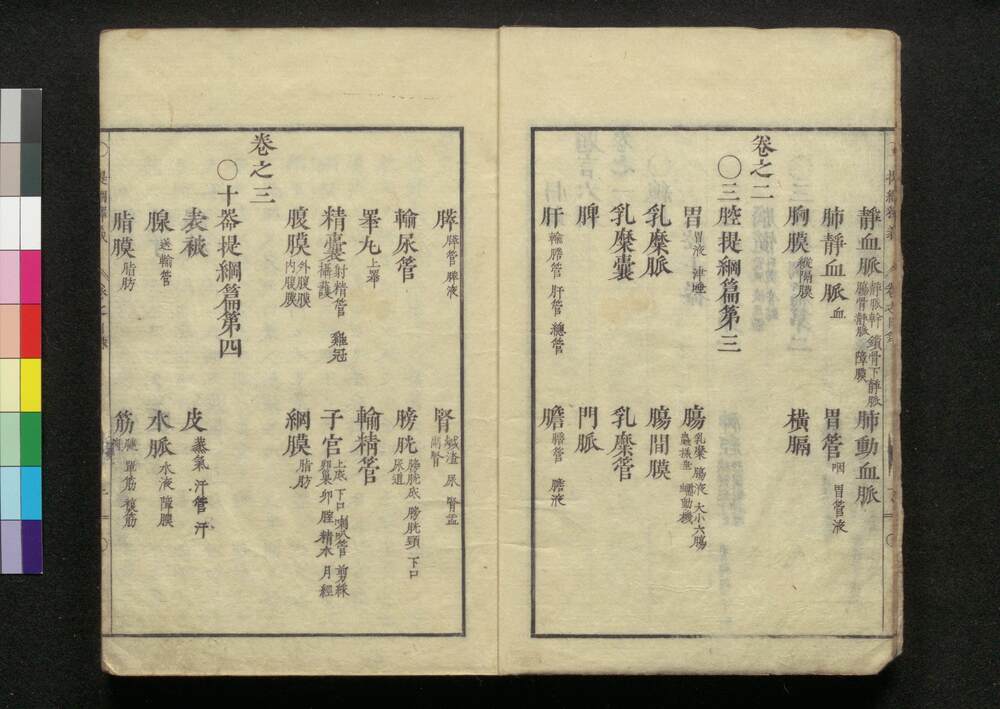 静血脈 静脈幹 鎖骨下静脈 腸骨静脈 障膜
肺動血脈
肺静血脈 血
胃管 咽 胃管液
胸膜 縦隔膜
横膈
巻之二
〇三腔提綱篇第三
胃 胃液 津唾
腸 乳糜 腸液 大小六腸 蟲様垂 蠕動機
乳糜脈
腸間膜
乳糜嚢
乳糜管
脾
門脈
肝 輸膽管 肝管 總管
膽 膽管 膽液
膵 膵管 膵液
腎 鹹渣 尿 腎盂 副腎
輸尿管
膀胱 膀胱底 膀胱頸 下口 尿道
睾丸 上睾
輸精管
精嚢 射精管 雞冠 攝護
子宮 上底 下口 喇叭管 剪綵 卵巣 卵 腟 精水 月經
腹膜 外腹膜 内腹膜
網膜 脂肪
巻之三
〇十器提綱篇第四
表被
皮 蒸氣 汗管 汗
腺 送輸管
水脈 水液 障膜
脂膜 脂肪
筋 腱 單筋 複筋